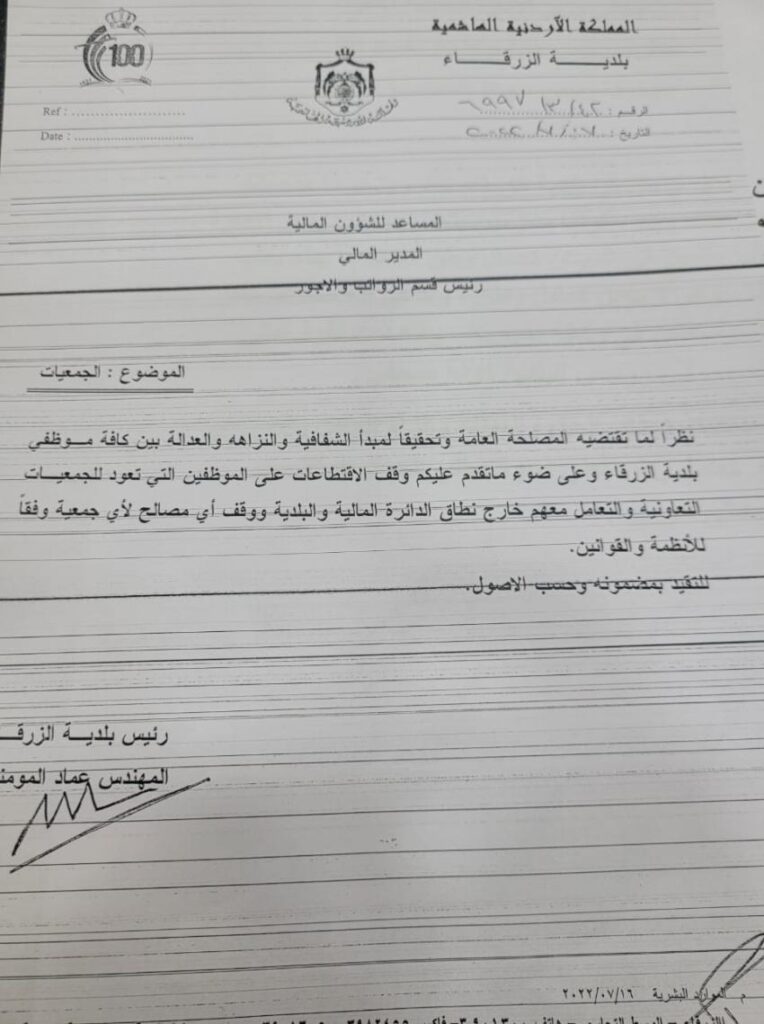 المملكة الأردنية الهاشمية
بلديــــة الزرقــــاء
100
Ref : ........................
Date : ..............................
الرقم : ٦٩٩٧/٣/٤٢
التاريخ :
المساعد للشؤون المالية
المدير المالي
رئيس قسم الرواتب والاجور
الموضوع : الجمعيات
نظراً لما تقتضيه المصلحة العامة وتحقيقاً لمبدأ الشفافية والنزاهه والعدالة بين كافة موظفي
بلدية الزرقاء وعلى ضوء ماتقدم عليكم وقف الاقتطاعات على الموظفين التي تعود للجمعيات
التعاونية والتعامل معهم خارج نطاق الدائرة المالية والبلدية ووقف أي مصالح لأي جمعية وفقاً
للأنظمة والقوانين.
للتقيد بمضمونه وحسب الاصول.
رئيس بلديــة الزرقـ
المهندس عماد المومنـ
م الموارد البشرية ٢٠٢٢/٠٧/١٦